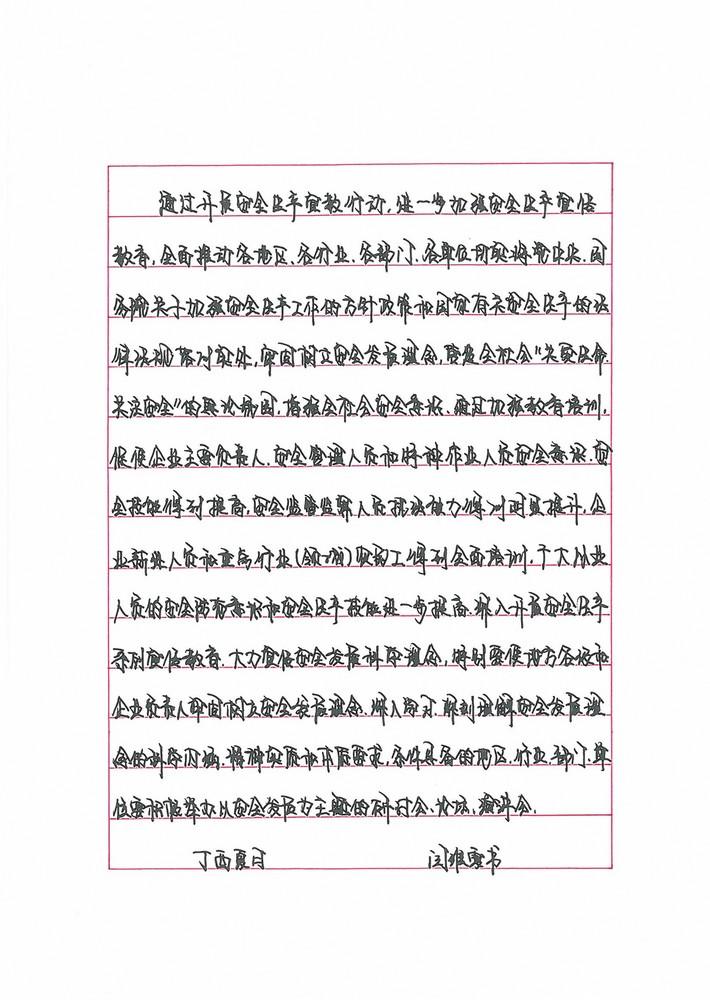 通过开展安全生产宣教行动，进一步加强安全生产宣传
教育，全面推动各地区、各行业、各部门、各单位切实将党中央、国
务院关于加强安全生产工作的方针政策和国家有关安全生产的法
律法规落到实处，牢固树立安全发展理念，营造全社会“关爱生命、
关注安全”的舆论氛围，增强全社会安全意识。通过加强教育培训，
促使企业主要负责人、安全管理人员和特种作业人员安全意识、安
全技能得到提高，安全监管监察人员执法能力得到明显提升，企
业新进人员和重点行业（领域）农民工得到全面培训，广大从业
人员的安全防范意识和安全生产技能进一步提高。深入开展安全生产
系列宣传教育。大力宣传安全发展科学理念，特别要使地方各级和
企业负责人牢固树立安全发展理念，深入学习、深刻理解安全发展理
念的科学内涵、精神实质和本质要求，条件具备的地区、行业、部门、单
位要积极举办以安全发展为主题的研讨会、论坛、演讲会。
丁酉夏月 闫维云书